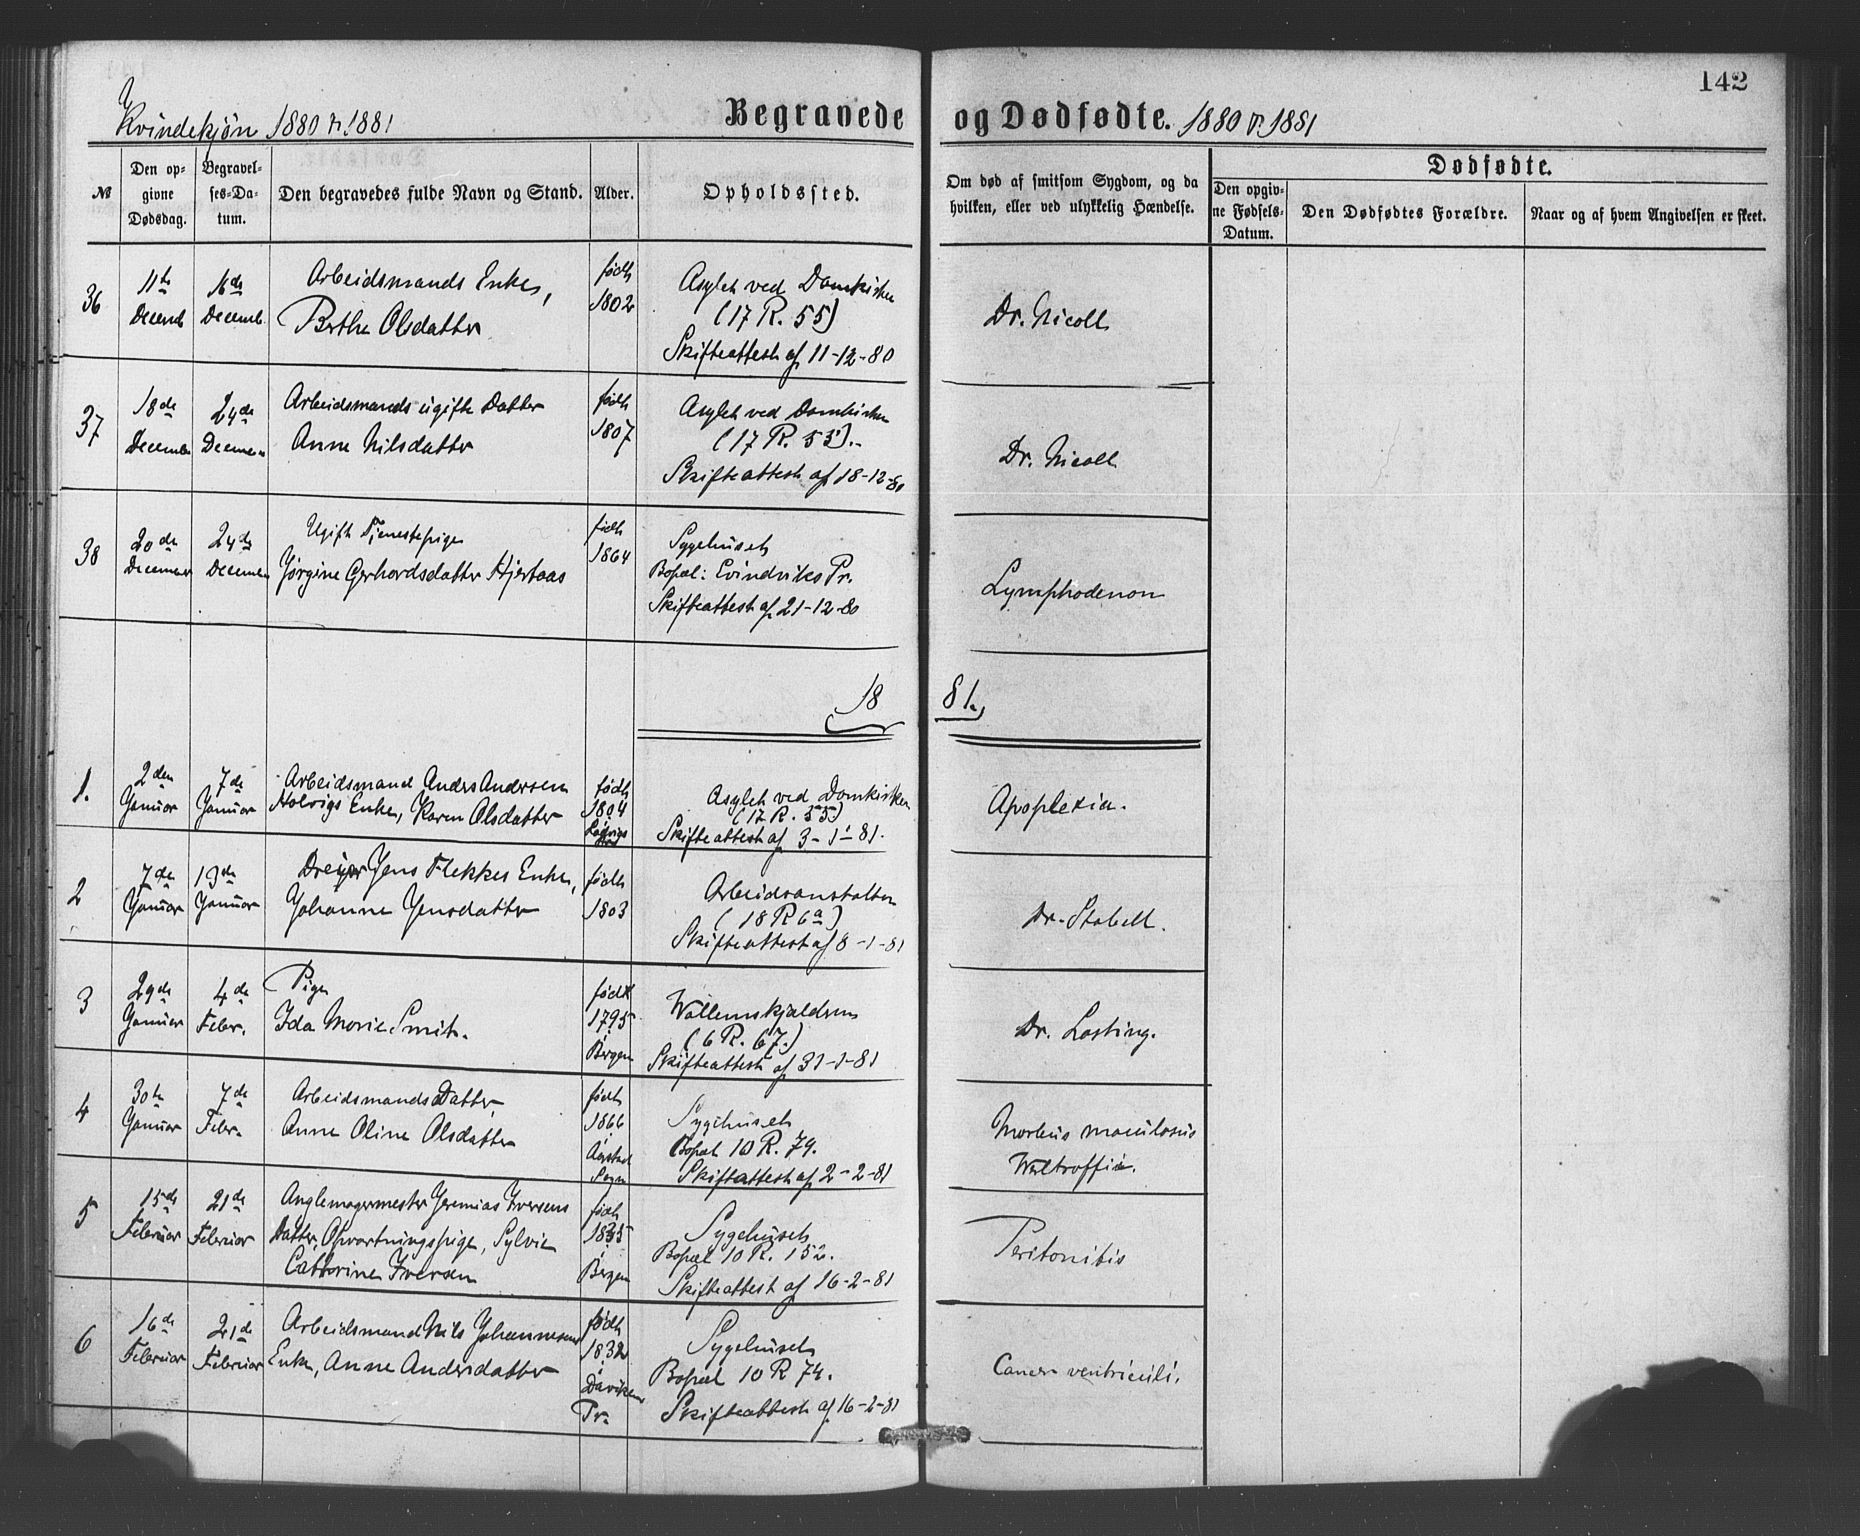 142
Kvindekjøn 1880 & 1881
Begravede og Dødfødte. 1880 & 1881
№
Den op-
givne
Dødsdag.
Begravel-
ses-Da-
tum.
Den begravedes fulde Navn og Stand.
Alder.
Opholdssted.
Om død af smitsom Sygdom, og da
hvilken, eller ved ulykkelig Hændelse.
Dødfødte.
Den opgiv-
ne Fødsels-
Datum.
Den Dødfødtes Forældre.
Naar og af hvem Angivelsen er skeet.
36
11te
Decemb
16de
Decemb.
Arbeidsmands Enke,
Berthe Olsdatter
født
1802
Asylet ved Domkirken
(17 R. 55)
Skifteattest af 11-12-80
Dr. Nicoll
37
18de
December
24de
December
Arbeidsmands ugifte Datter
Anne Nilsdatter
født
1807
Asylet ved Domkirken
(17 R. 55).
Skifteattest af 18-12-80
Dr. Nicoll
38
20de
December
24de
December
Ugift Tjenestepige
Jørgine Gerhardsdatter Hjertaas
født
1864
Sygehuset
Bopæl: Evindviks Pr.
Skifteattest af 21-12-80
Lymphodenom
18 81.
1.
2den
Januar
7de
Januar
Arbeidsmand Anders Andersen
Holvigs Enke, Karen Olsdatter
født
1804
Asylet ved Domkirken
(17 R. 55)
Skifteattest af 3-1-81.
Apoplexia.
2
7de
Januar
13de
Januar
Dreyer Jens Flekkes Enke,
Johanne Jensdatter
født
1803
Arbeidsanstalten
(18 R 6a)
Skifteattest af 8-1-81
Dr. Stabell.
3
29de
Januar
4de
Febr.
Pige
Ida Marie Smit.
født
1795
Bergen
Wallemskjælderen
(6 R. 67.)
Skifteattest af 31-1-81
Dr. Lasting.
4
30te
Januar
7de
Febr.
Arbeidsmands Datter,
Anne Oline Olsdatter
født
1866
i
Sogn
Sygehuset
Bopæl 10 R. 79.
Skifteattest af 2-2-81
Morbus maculosus
Werlhoffii.
5
15de
Februar
21de
Februar
Anglemagermester Jeremias Iversens
Datter, Opvartningspige, Sylvie
Cathrine Iversen
født
1835
i
Bergen
Sygehuset
Bopæl 10 R. 152.
Skifteattest af 16-2-81
Peritonitis
6
16de
Februar
21de
Februar
Arbeidsmand Nils Johannesens
Enke, Anne Andersdatter
født
1832
i
Daviken
Pr.
Sygehuset
Bopæl 10 R 74.
Skifteattest af 16-2-81
Cancer ventriculi.